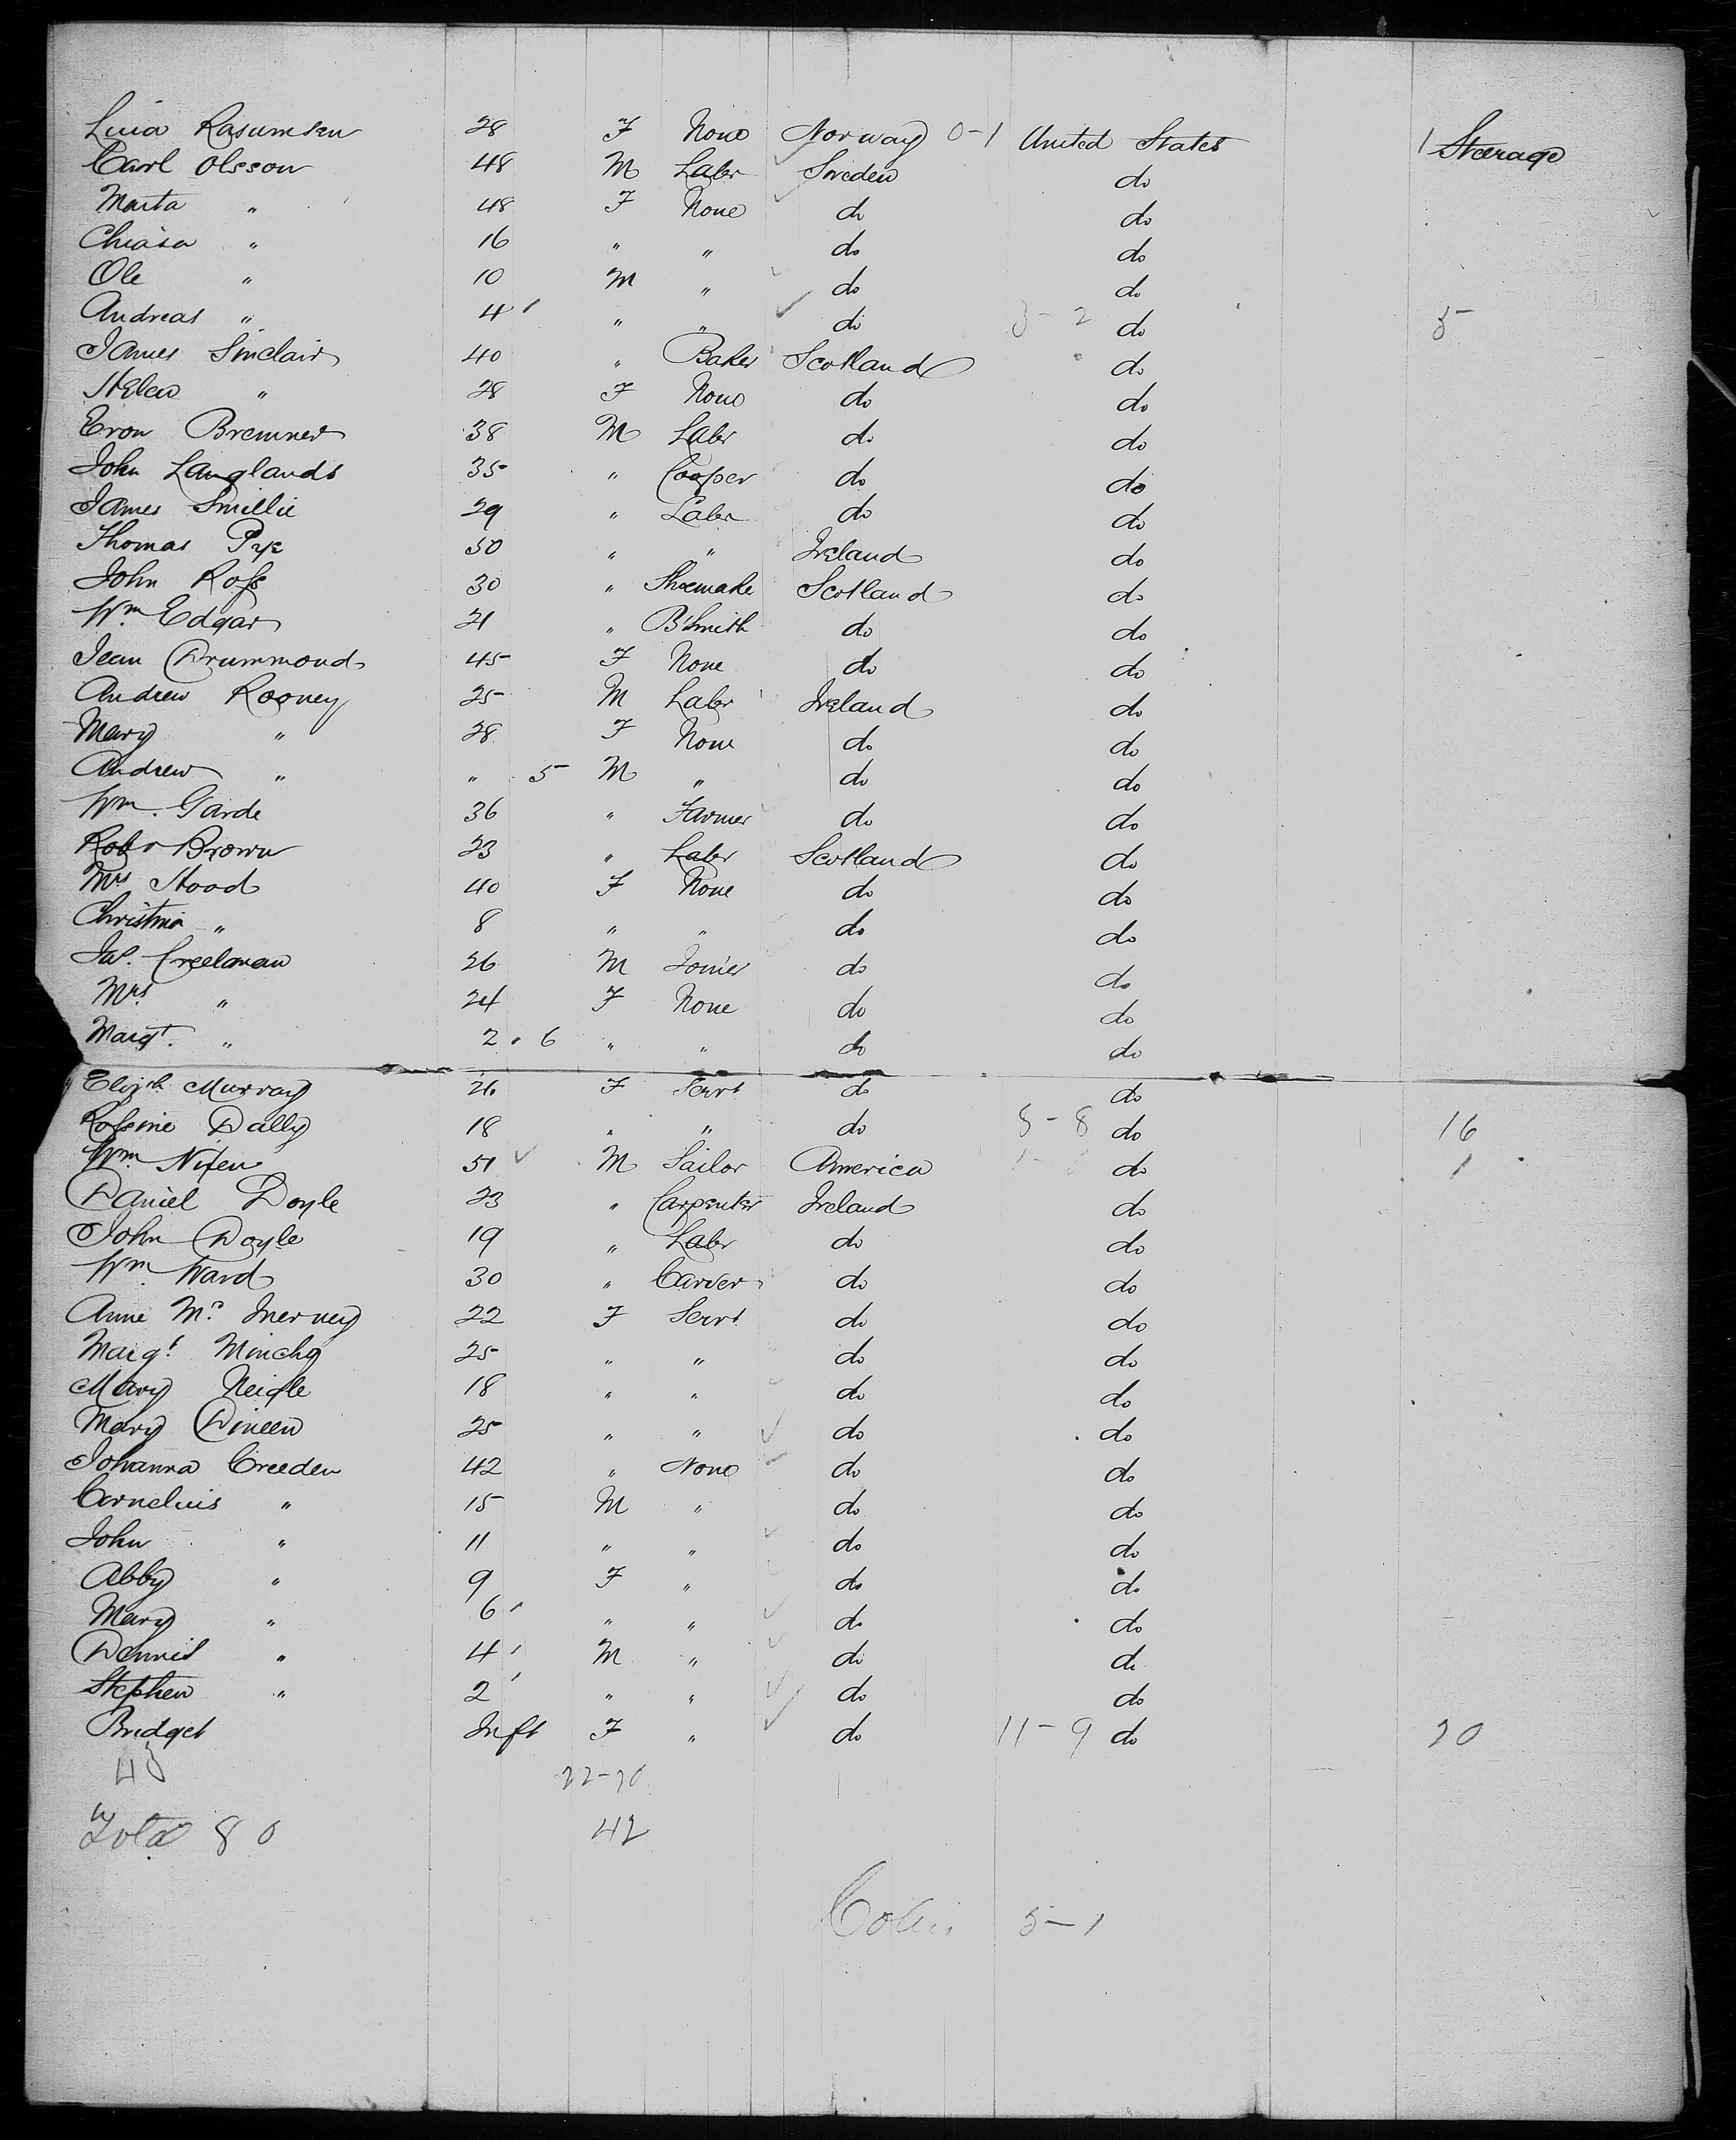 Lina Rasumsen 28 F None Norway 0-1 United States 1 Steerage
Carl Olsson 48 M Labr Sweden do
Marta " 48 F None do do
" 16 " " do do
Ole " 10 M " do do
Andreas " 4 " " do 3-2 do 5
James Sinclair 40 " Baker Scotland do
Helen " 28 F None do do
Eron Bremner 38 M Labr do do
John Langlands 35 " Cooper do do
James Smillie 29 " Labr do do
Thomas Pye 50 " " Ireland do
John Ross 30 " Shoemake Scotland do
Wm Edgar 21 " B'Smith do do
Jean Drummond 45 F None do do
Andrew Rooney 25 M Labr Ireland do
Mary " 28 F None do do
Andrew " " 5 M " do do
Wm. Garde 36 " Farmer do do
Robt Brown 23 " Labr Scotland do
Mrs Hood 40 F None do do
Christina " 8 " " do do
Jas. Creelman 26 M Joiner do do
Mrs " 24 F None do do
Margt. " 2 . 6 " " do do
Elizth Murray 26 F Servt do do
Rossine Dally 18 " " do 8-8 do 16
Wm Nixen 51 M Sailor America do 1
Daniel Doyle 23 " Carpenter Ireland do
John Doyle 19 " Labr do do
Wm. Ward 30 " Carver do do
Anne Mc Inerney 22 F Servt do do
Margt Minchy 25 " " do do
Mary Neigle 18 " " do do
Mary Dineen 25 " " do do
Johanna Creeden 42 " None do do
Cornelius " 15 M " do do
John " 11 " " do do
Abby " 9 F " do do
Mary " 6 " " do do
Dennis " 4 M " do do
Stephen " 2 " " do do
Bridget Inft F " do 11-9 do 20
22-20
Total 80 42
5-1